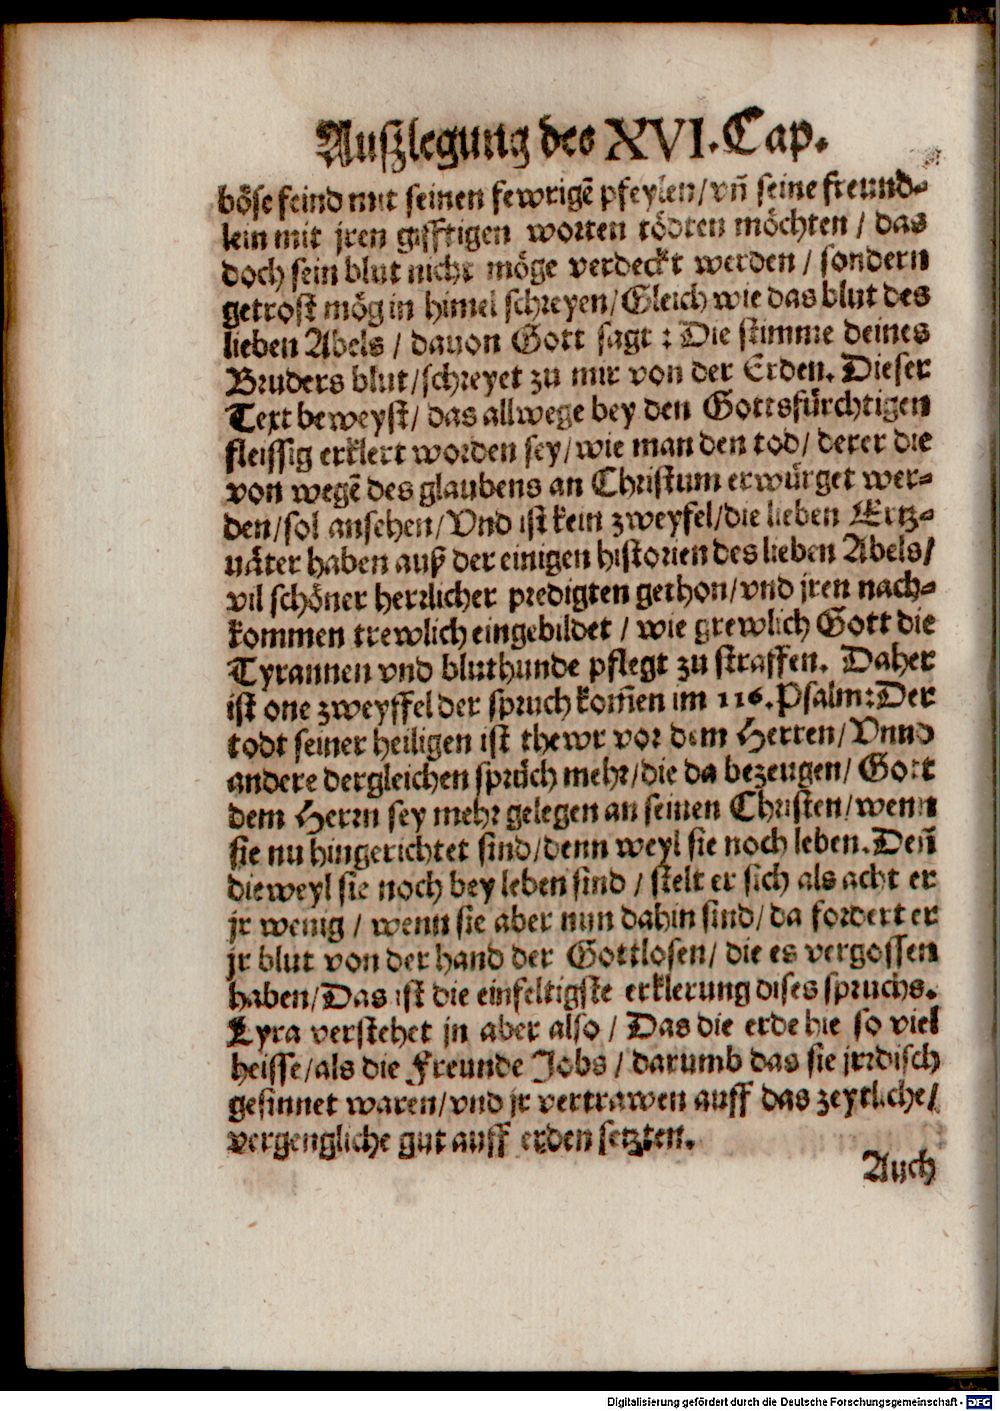 Außlegung des XVI. Cap.
böse feind mit seinen fewrigē pfeylen/ vñ seine freund-
lein mit jren gifftigen worten tödten möchten / das
doch sein blut nicht möge verdeckt werden / sondern
getrost mög in himel schreyen/ Gleich wie das blut des
lieben Abels / dauon Gott sagt : Die stimme deines
Bruders blut/ schreyet zu mir von der Erden. Dieser
Text beweyst/ das allwege bey den Gottsfürchtigen
fleissig erklert worden sey/ wie man den tod/ derer die
von wegē des glaubens an Christum erwürget wer-
den/ sol ansehen/ Vnd ist kein zweyfel/ die lieben Ertz-
uäter haben auß der einigen historien des lieben Abels/
vil schöner herrlicher predigten gethon/ vnd jren nach-
kommen trewlich eingebildet / wie grewlich Gott die
Tyrannen vnd bluthunde pflegt zu straffen. Daher
ist one zweyffel der spruch kom̃en im 116. Psalm: Der
todt seiner heiligen ist thewr vor dem Herren/ Vnnd
andere dergleichen sprüch mehr/ die da bezeugen/ Gott
dem Herrn sey mehr gelegen an seinen Christen/ wenn
sie nu hingerichtet sind/ denn weyl sie noch leben. Deñ
dieweyl sie noch bey leben sind / stelt er sich als acht er
jr wenig / wenn sie aber nun dahin sind/ da fordert er
jr blut von der hand der Gottlosen/ die es vergossen
haben/ Das ist die einfeltigste erklerung dises spruchs.
Lyra verstehet jn aber also / Das die erde hie so viel
heisse/ als die Freunde Jobs / darumb das sie jrrdisch
gesinnet waren/ vnd jr vertrawen auff das zeytliche/
vergengliche gut auff erden setzten.
Auch
Digitalisierung gefördert durch die Deutsche Forschungsgemeinschaft - DFG